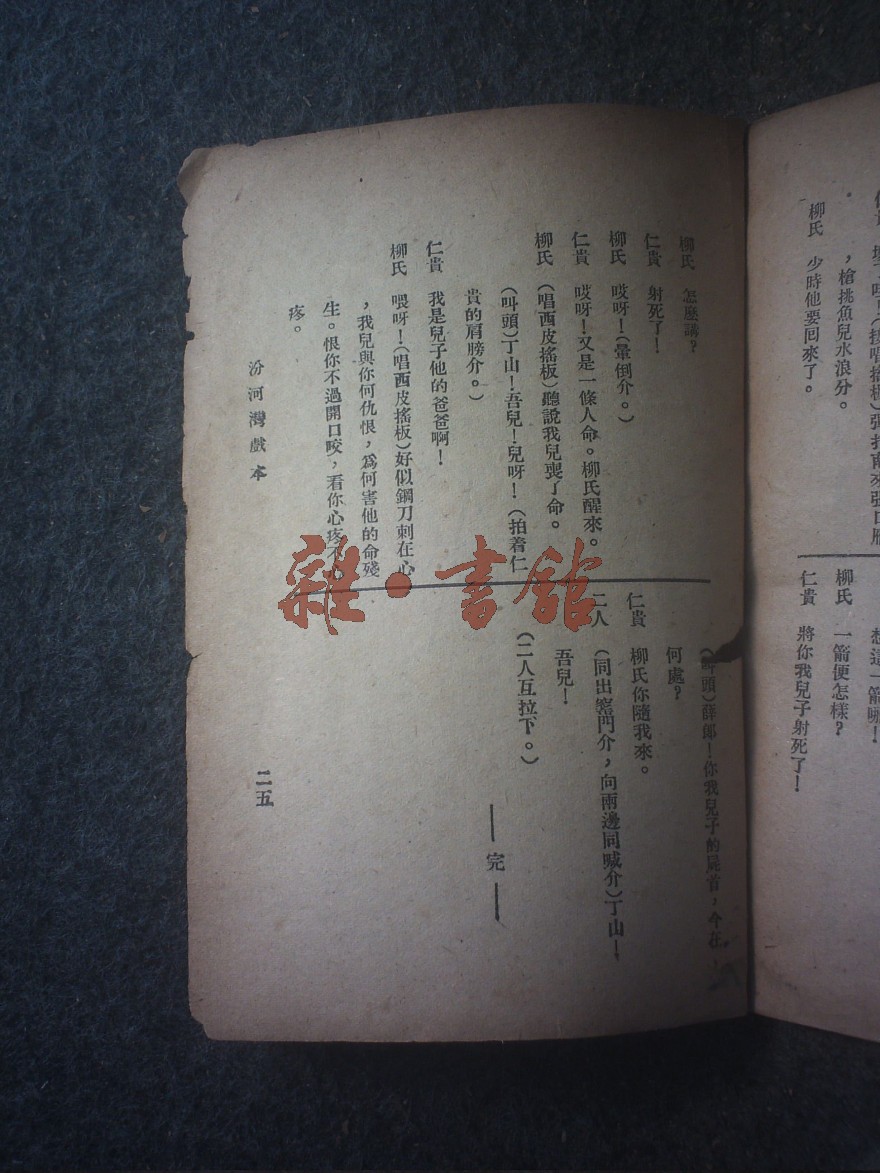 柳氏　少時他要回來了。
，槍挑魚兒水浪分。
柳氏　一箭便怎樣？
仁貴　將你我兒子射死了！
柳氏　怎麽講？
仁貴　射死了！
柳氏　哎呀！（暈倒介。）
仁貴　哎呀！又是一條人命。柳氏醒來。
柳氏　（唱西皮搖板）聽說我兒喪了命。
（叫頭）丁山！吾兒！兒呀！（拍着仁
貴的肩膀介。）
仁貴　我是兒子他的爸爸啊！
柳氏　喂呀！（唱西皮搖板）好似鋼刀刺在心
，我兒與你何仇恨，爲何害他的命殘
生。恨你不過開口咬，看你心疼不心
疼。
（叫頭）薛郎！你我兒子的屍首，今在
何處？
仁貴　柳氏你隨我來。
二人　（同出窰門介，向兩邊同喊介）丁山！
吾兒！
（二人互拉下。）
——完——
汾河灣戲本
二五
雜·書館